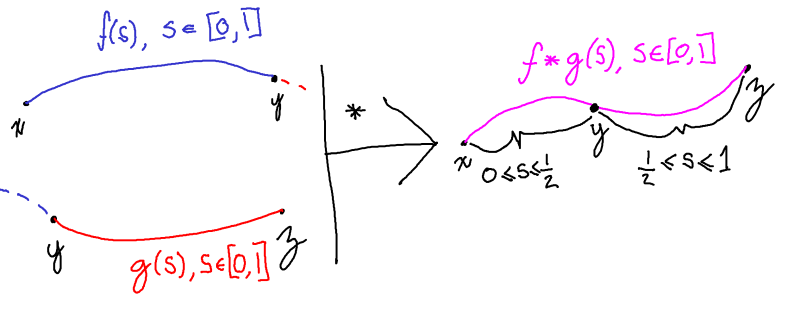 f(s), s∈[0,1]
x
y
y
z
g(s), s∈[0,1]
*
f*g(s), s∈[0,1]
x
y
z
0⩽s⩽1/2
1/2⩽s⩽1